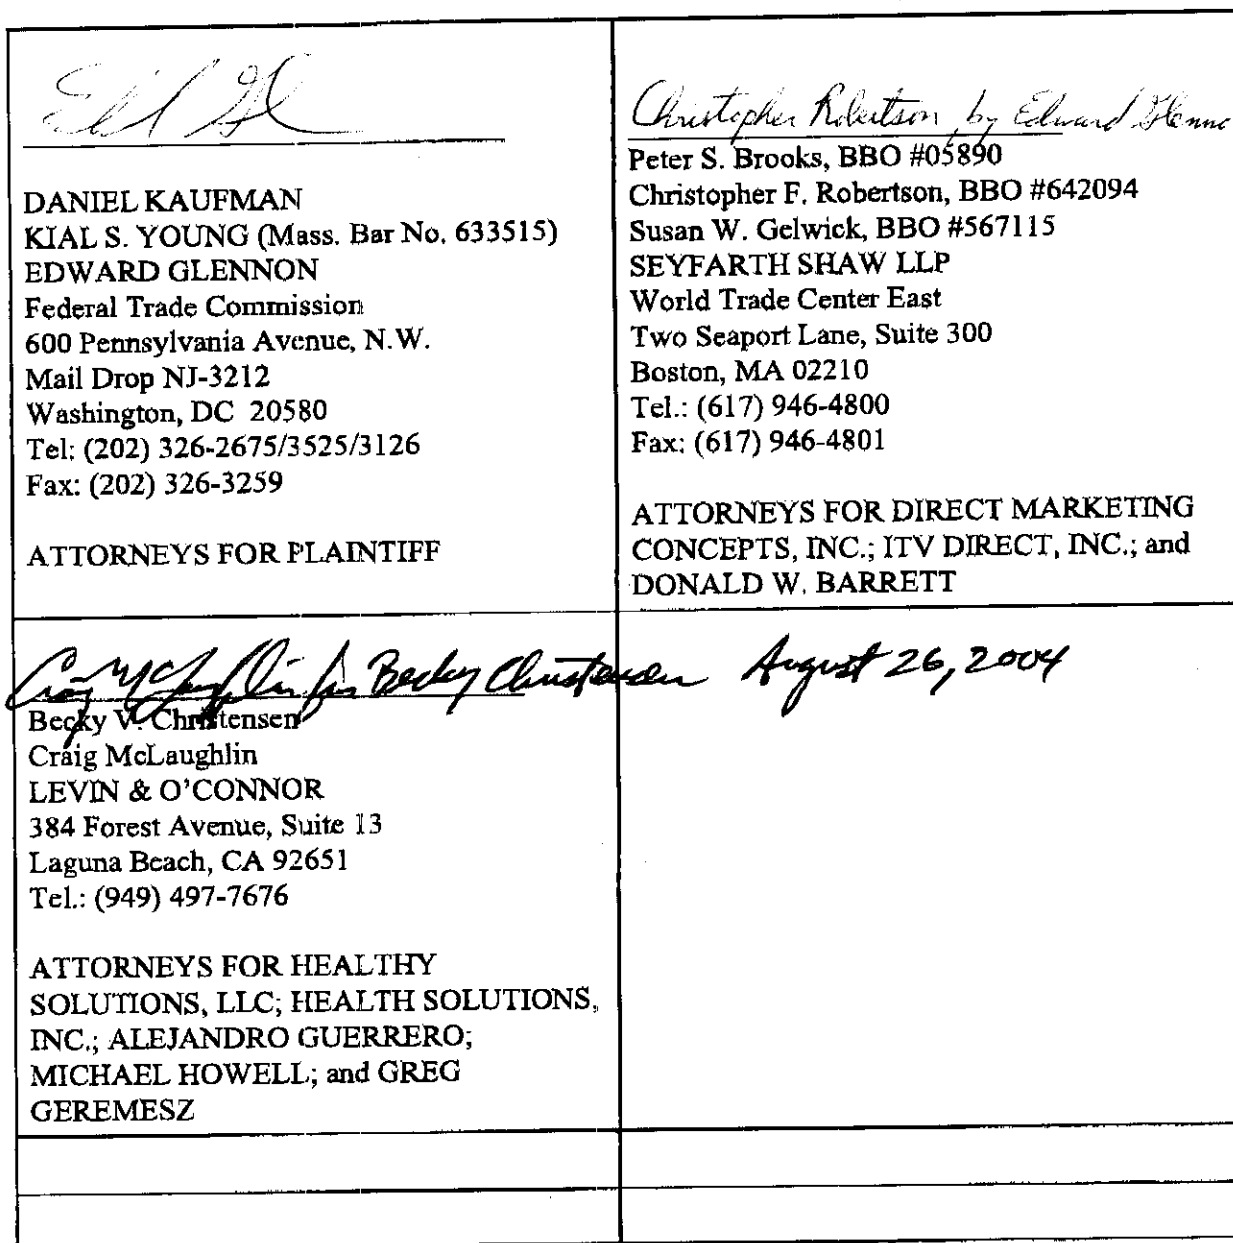 DANIEL KAUFMAN
KIAL S. YOUNG (Mass. Bar No. 633515)
EDWARD GLENNON
Federal Trade Commission
600 Pennsylvania Avenue, N.W.
Mail Drop NJ-3212
Washington, DC 20580
Tel: (202) 326-2675/3525/3126
Fax: (202) 326-3259
ATTORNEYS FOR PLAINTIFF
Christopher Robertson, by Edward Glenno
Peter S. Brooks, BBO #05890
Christopher F. Robertson, BBO #642094
Susan W. Gelwick, BBO #567115
SEYFARTH SHAW LLP
World Trade Center East
Two Seaport Lane, Suite 300
Boston, MA 02210
Tel.: (617) 946-4800
Fax: (617) 946-4801
ATTORNEYS FOR DIRECT MARKETING
CONCEPTS, INC.; ITV DIRECT, INC.; and
DONALD W. BARRETT
Craig McLaughlin for Becky Christensen August 26, 2004
Becky V. Christensen
Craig McLaughlin
LEVIN & O'CONNOR
384 Forest Avenue, Suite 13
Laguna Beach, CA 92651
Tel.: (949) 497-7676
ATTORNEYS FOR HEALTHY
SOLUTIONS, LLC; HEALTH SOLUTIONS,
INC.; ALEJANDRO GUERRERO;
MICHAEL HOWELL; and GREG
GEREMESZ